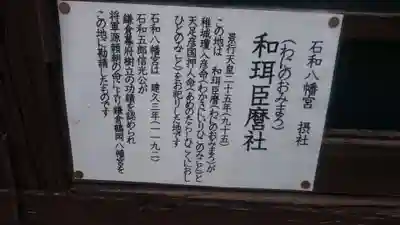 石和八幡宮　摂社
(わにのおみまろ)
和珥臣麿社
景行天皇二十五年(九十五)
この地は　和珥臣麿(わにのおみまろ)が
稚城瓊入彦命(わかきにいりひこのみこと)と
天足彦国押人命(あめのたらしひこくにおし
ひとのみこと)をお祀りした地です
石和八幡宮は　建久三年(一一九二)
石和五郎信光公が
鎌倉幕府樹立の功績を認められ
将軍源頼朝の命により鎌倉鶴岡八幡宮を
この地に勧請したものです